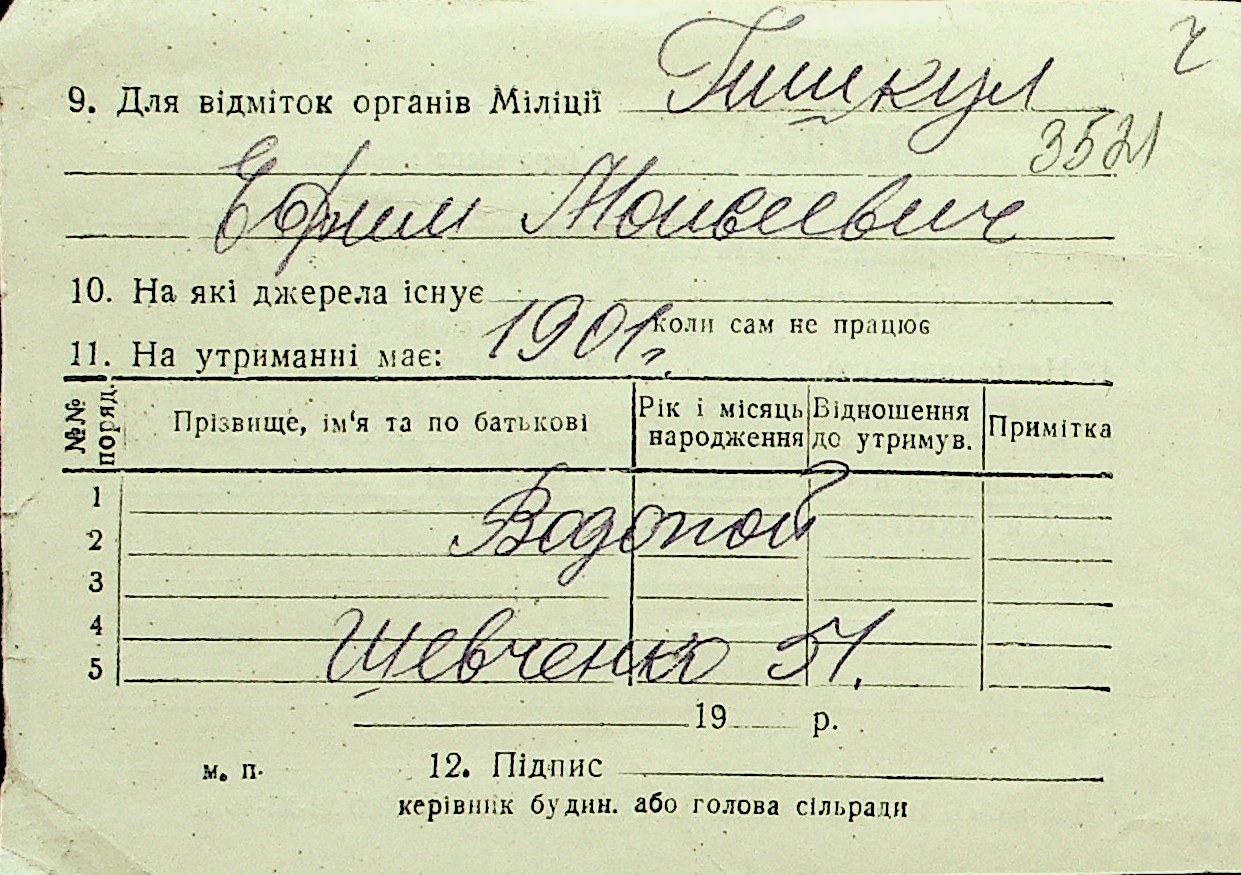 ч
9. Для відміток органів Міліції Тишкул
3521
Ефим Моисеевич
10. На які джерела існує
коли сам не працює
1901 г.
11. На утриманні має:
№№ поряд. Прізвище, ім'я та по батькові Рік і місяць народження Відношення до утримув. Примітка
1
Водопой
2
3
4
Шевченко 51.
5
19 р.
м. п. 12. Підпис
керівник будин. або голова сільради